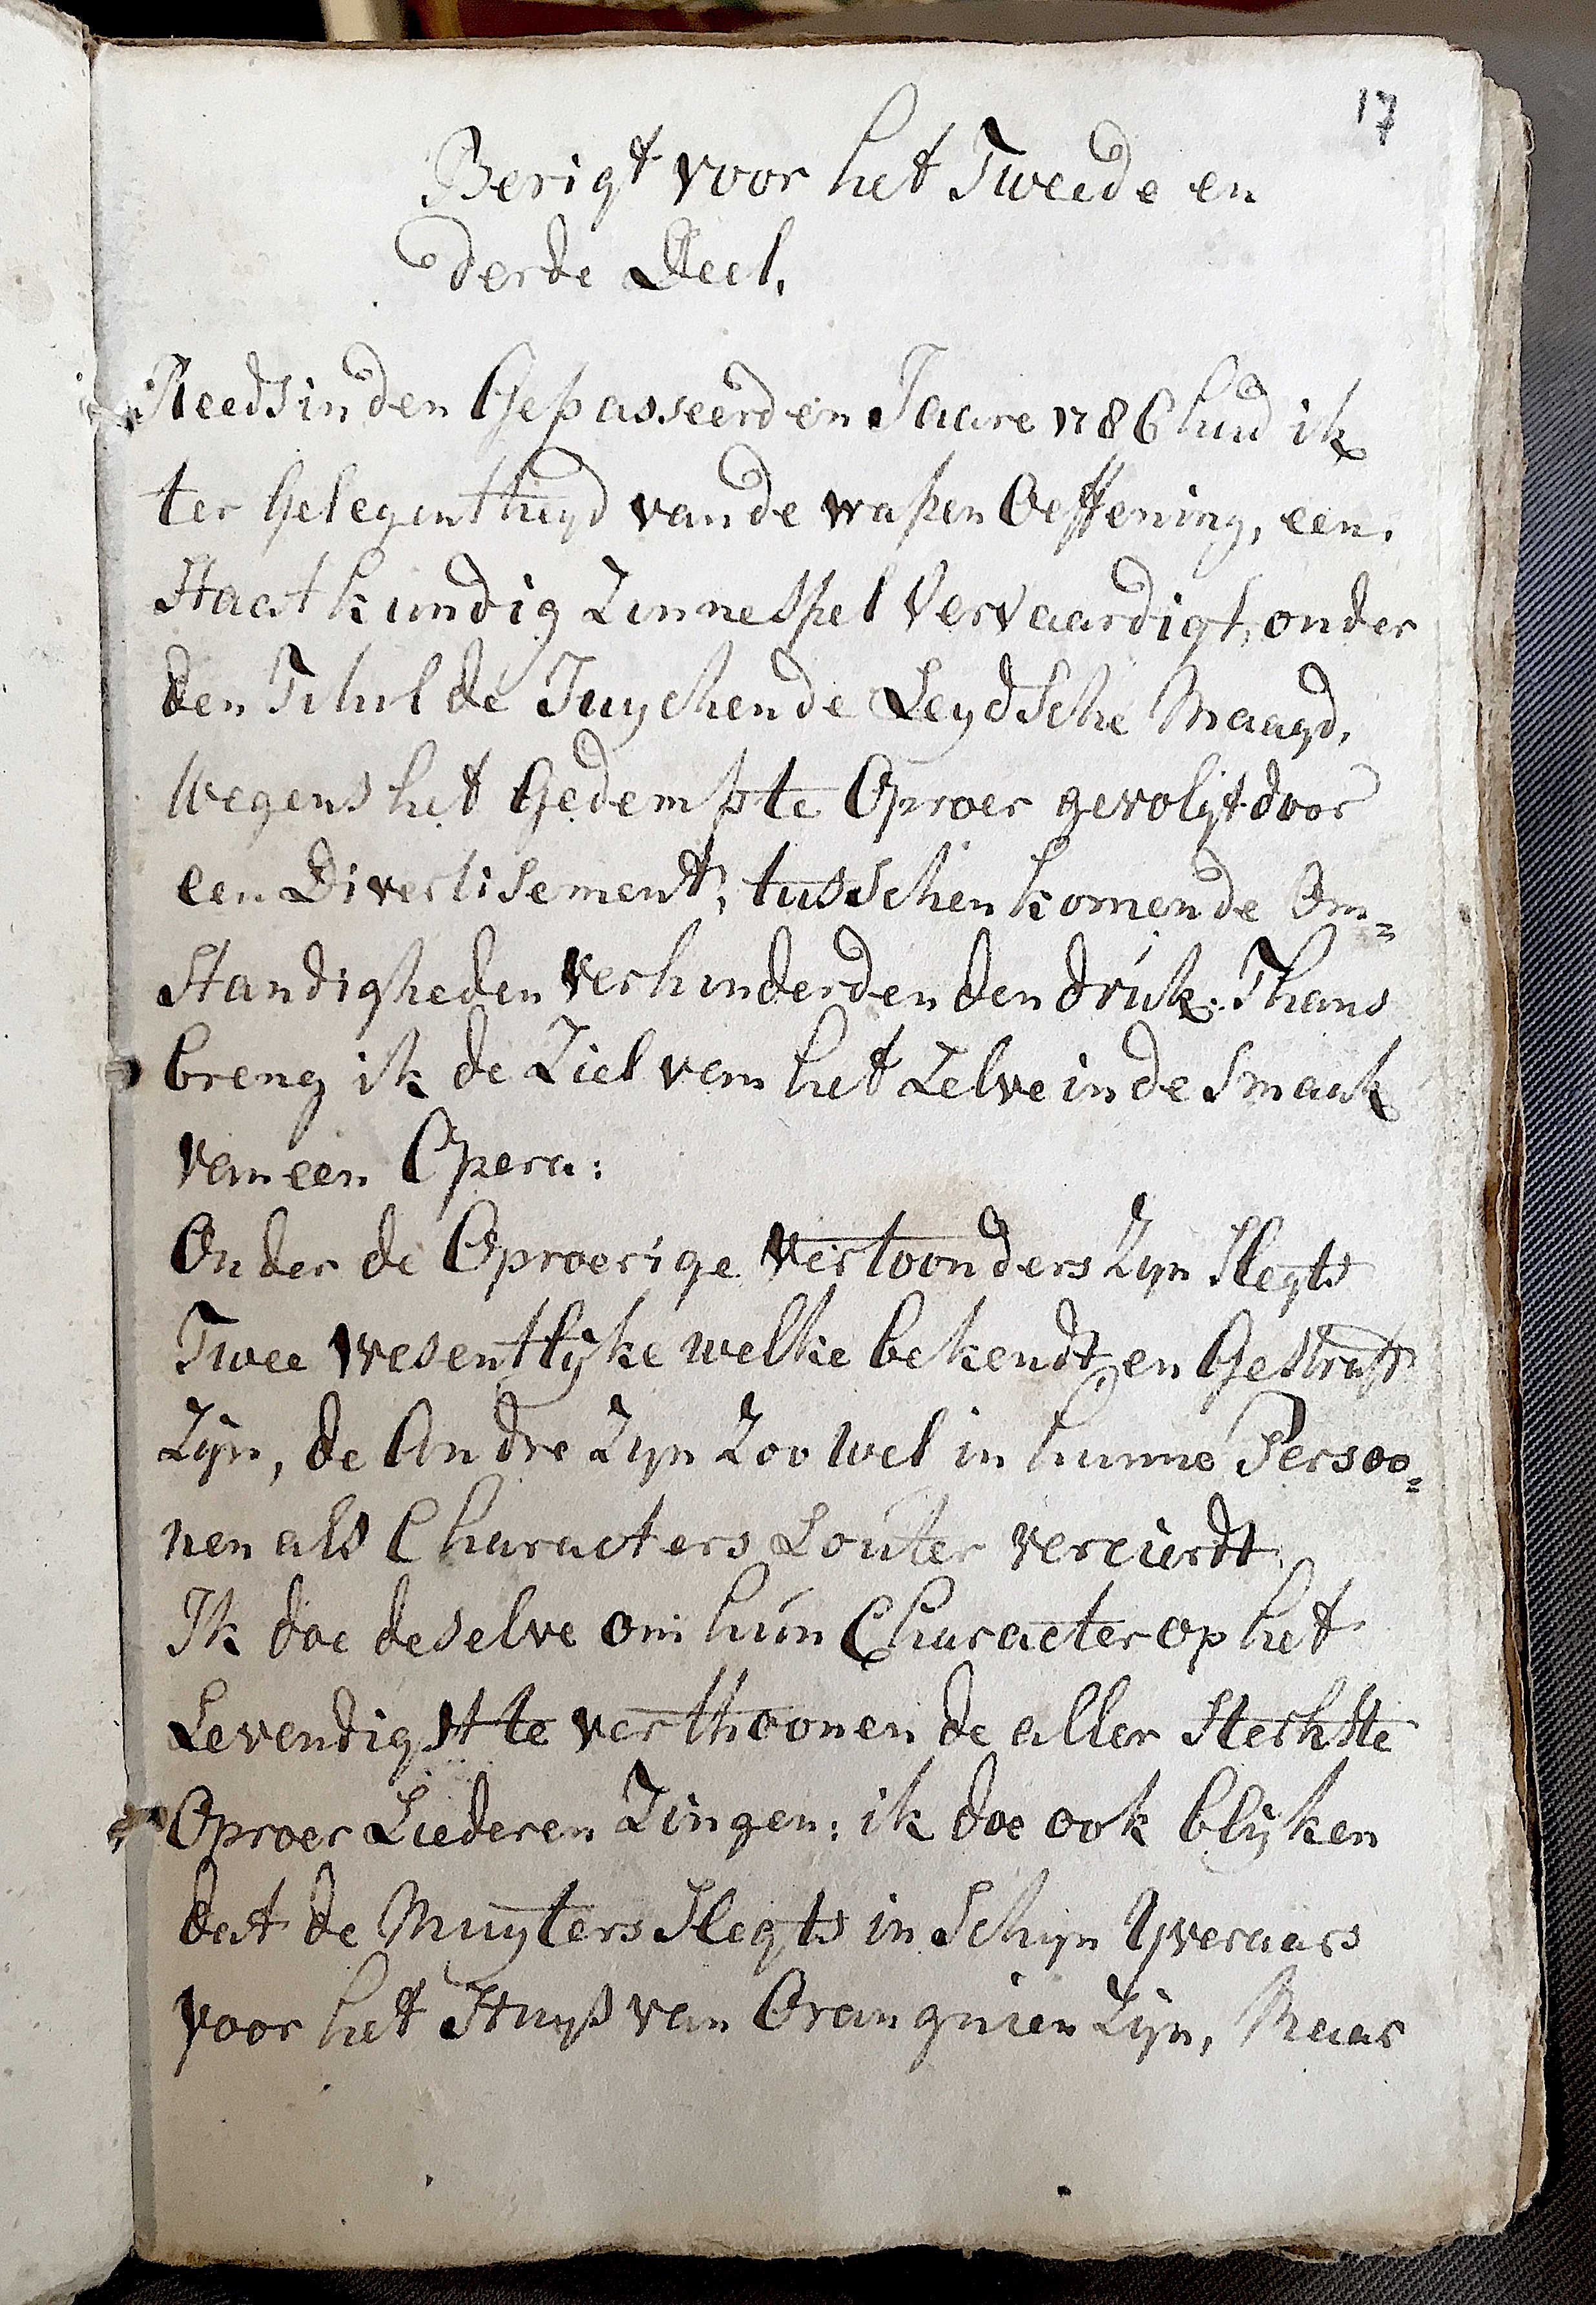 17
Berigt voor het Tweede en
derde Deel.
Reeds in den Gepasseerden Jaare 1786 had ik
ter Gelegentheyd van de wapen Oeffening, een
Staatkundig Zinnespel Vervaardigt, onder
den Titul de Juychende Leydsche Maagd,
Wegens het Gedempte Oproer gevolgt door
een Divertisement; tusschen komende Om=
Standigheden verhinderden den druk: Thans
breng ik de Ziel van het Zelve in de Smaak
van een Opera:
Onder de Oproerige vertoonders Zyn Slegts
Twee wesentlyke welke bekendt en Gestraft
Zyn, de Andre Zyn Zoo wel in hunne Persoo=
nen als Characters Louter vercierdt.
Ik doe deselve om hun Character op het
Levendigst te verthoonen de aller Slechste
Oproer Liederen Zingen: ik doe ook blyken
dat de Muyters Slegts in Schyn Yveraars
voor het Huyß van Orangnien Zyn, Maar